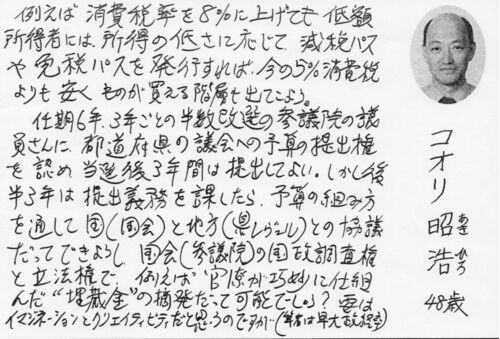 例えば消費税率を8%に上げても低額
所得者には、所得の低さに応じて減税パス
や免税パスを発行すれば、今の5%消費税
よりも安くものが買える階層も出てこよう。
任期6年、3年ごとの半数改選の参議院の議
員さんに、都道府県の議会への予算の提出権
を認め当選後3年間は提出してよい。しかし後
半3年は提出義務を課したら、予算の組み方
を通して国(国会)と地方(県レヴェル)との協議
だってできようし 国会(参議院)の国政調査権
と立法権で、例えば官僚が巧妙に仕組
んだ"埋蔵金"の摘発だって可能でしょう?要は
イマジネーションとクリエイティビティだと思うのですが(筆者は早大政経卒)
コオリ昭浩
あき
ひろ
48歳